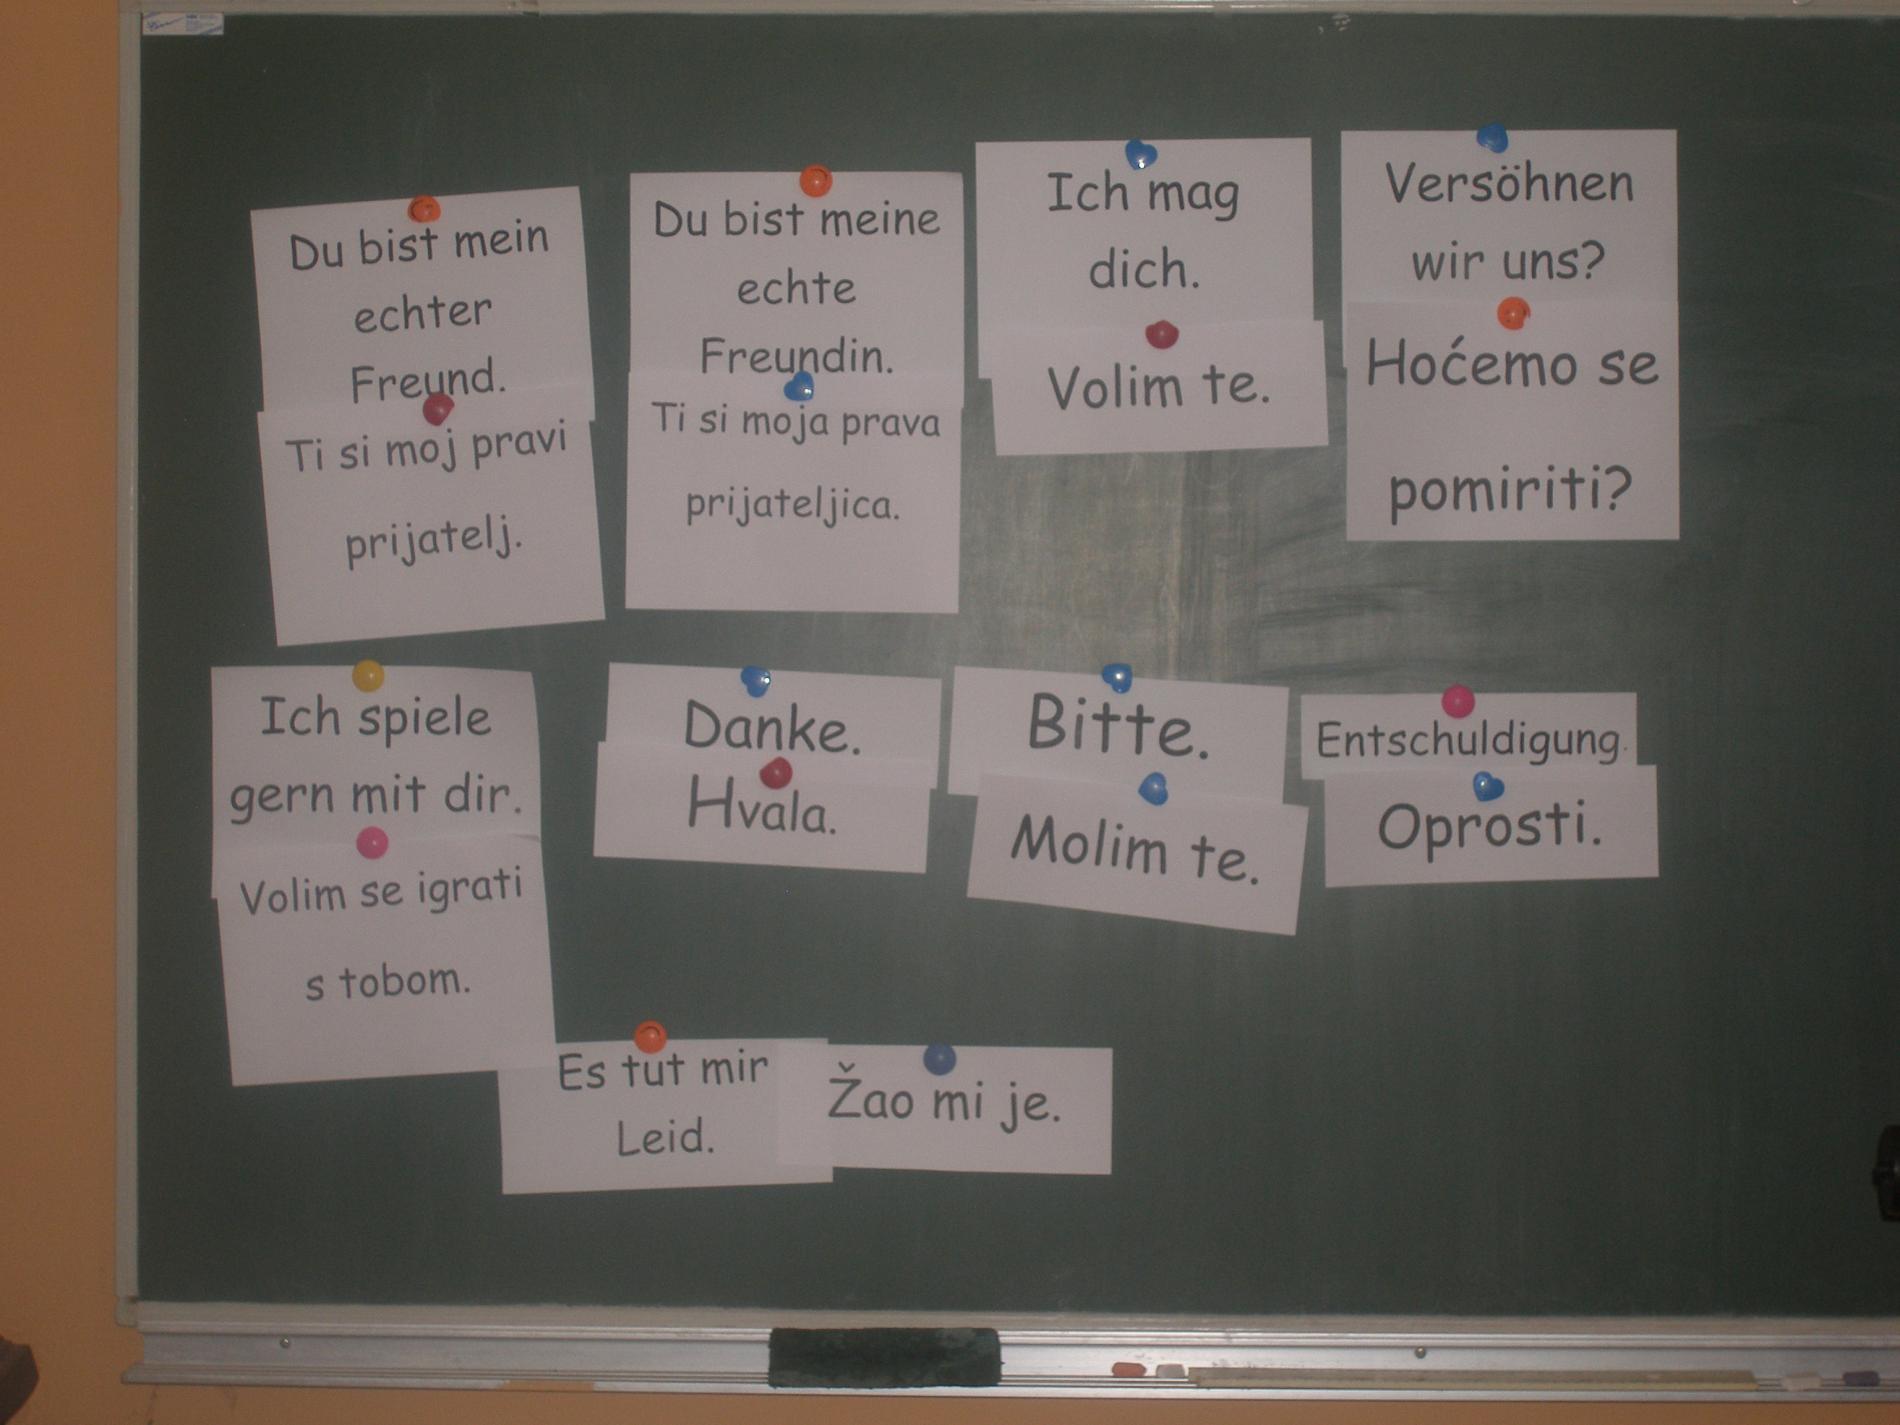 Du bist mein
echter
Freund.
Ti si moj pravi
prijatelj.
Du bist meine
echte
Freundin.
Ti si moja prava
prijateljica.
Ich mag
dich.
Volim te.
Versöhnen
wir uns?
Hoćemo se
pomiriti?
Ich spiele
gern mit dir.
Volim se igrati
s tobom.
Danke.
Hvala.
Bitte.
Molim te.
Entschuldigung.
Oprosti.
Es tut mir
Leid.
Žao mi je.